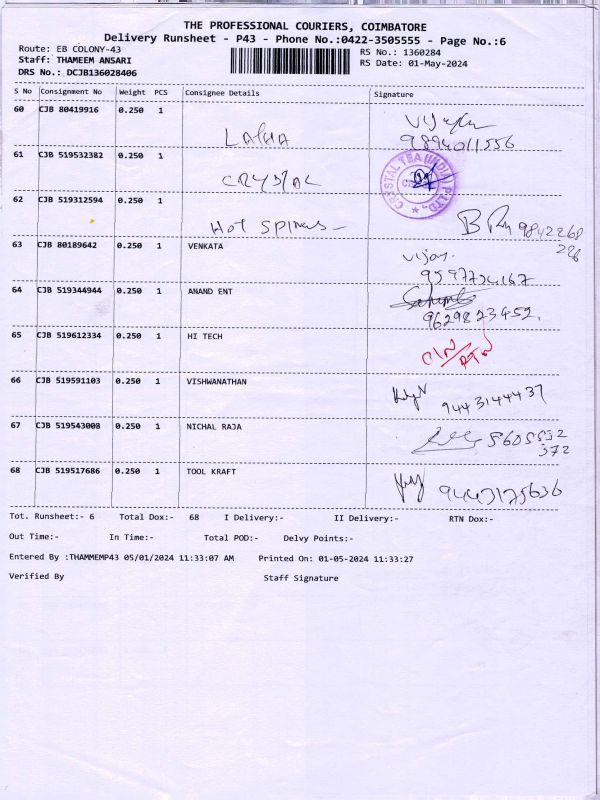 THE PROFESSIONAL COURIERS, COIMBATORE
Delivery Runsheet - P43 - Phone No.:0422-3505555 - Page No.:6
Route: EB COLONY-43 RS No.: 1360284
Staff: THAMEEM ANSARI RS Date: 01-May-2024
DRS No.: DCJB136028406
S No Consignment No Weight PCS Consignee Details Signature
60 CJB 80419916 0.250 1
LALHA 9894011556
61 CJB 519532382 0.250 1
CRYSTAL CRYSTAL TEA (INDIA) P LTD.
62 CJB 519312594 0.250 1
HOT SPINGS 9842268
228
63 CJB 80189642 0.250 1 VENKATA vijay.
9597724167
64 CJB 519344944 0.250 1 ANAND ENT
9629823452.
65 CJB 519612334 0.250 1 HI TECH
66 CJB 519591103 0.250 1 VISHWANATHAN 9443144437
67 CJB 519543008 0.250 1 NICHAL RAJA 8608552
372
68 CJB 519517686 0.250 1 TOOL KRAFT 9443175636
Tot. Runsheet:- 6 Total Dox:- 68 I Delivery:- II Delivery:- RTN Dox:-
Out Time:- In Time:- Total POD:- Delvy Points:-
Entered By :THAMMEMP43 05/01/2024 11:33:07 AM Printed On: 01-05-2024 11:33:27
Verified By Staff Signature